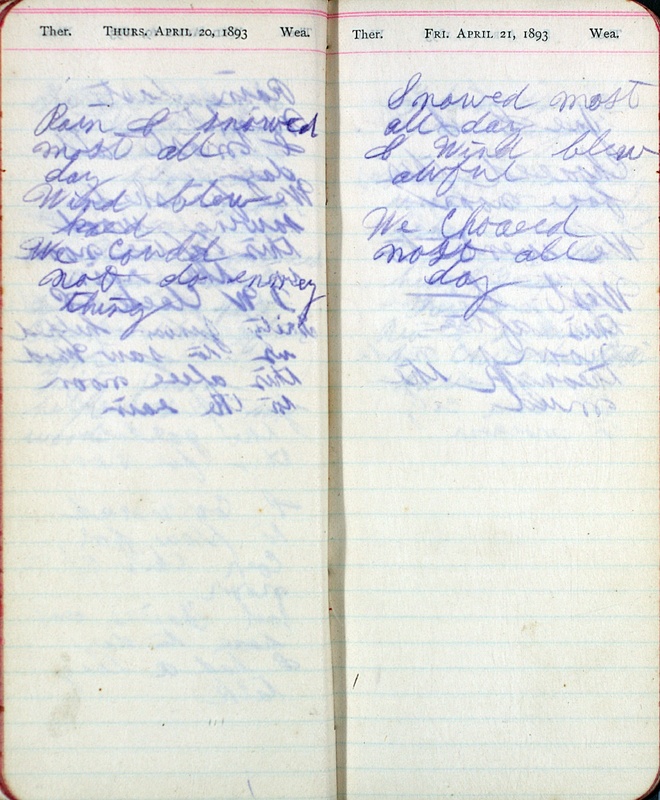 Ther. THURS. APRIL 20, 1893 Wea.
Rain & snowed
most all
day
Wind blew
hard
We could
not do enney
thing
Ther. FRI. APRIL 21, 1893 Wea.
Snowed most
all day
& Wind blew
awful
We Choreed
most all
day